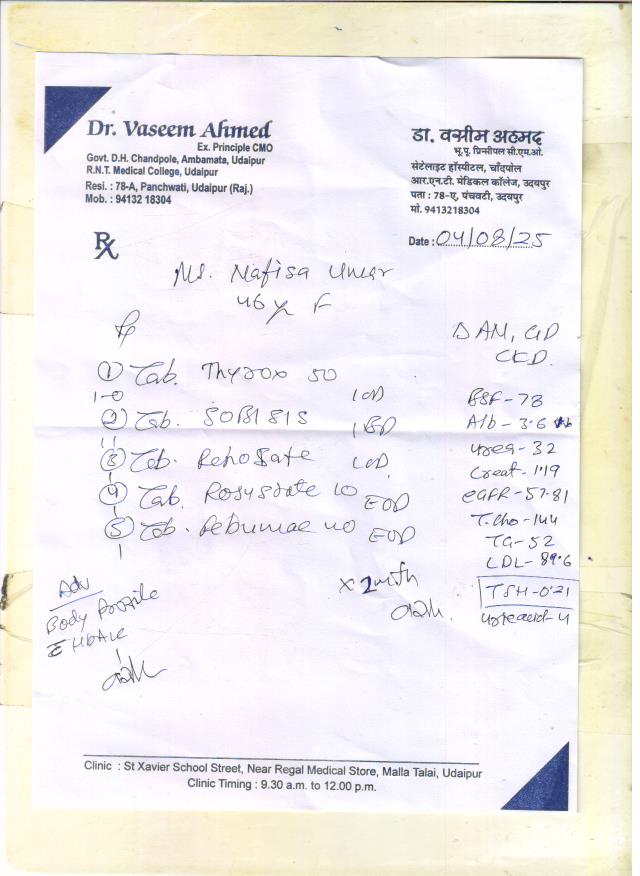 Dr. Vaseem Ahmed
Ex. Principle CMO
Govt. D.H. Chandpole, Ambamata, Udaipur
R.N.T. Medical College, Udaipur
Resi. : 78-A, Panchwati, Udaipur (Raj.)
Mob. : 94132 18304
डा. वसीम अहमद
भू.पू. प्रिंसीपल सी.एम.ओ.
सेटेलाइट हॉस्पीटल, चाँदपोल
आर.एन.टी. मेडिकल कॉलेज, उदयपुर
पता : 78-ए, पंचवटी, उदयपुर
मो. 9413218304
Date : 04/08/25
Rx
Ms. Nafisa Umar
46 y F
CKD
① Tab. Thyrox 50 1 OD
1-0
② Tab. SOBISIS 1 BD
③ Tab. 1 OD
④ Tab. 10 EOD
⑤ Tab. 40 EOD
x 2 mth
BSF - 78
Alb - 3.6
Urea - 32
Creat - 1.19
eGFR - 57.81
T.Cho - 144
TG - 52
LDL - 89.6
TSH - 0.21
Uric acid - 4
Adv
Body Profile
HbA1c
Clinic : St Xavier School Street, Near Regal Medical Store, Malla Talai, Udaipur
Clinic Timing : 9.30 a.m. to 12.00 p.m.